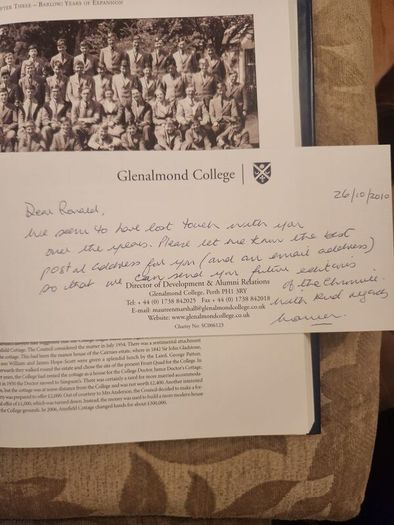 FTER THREE – BARLOW: YEARS OF EXPANSION
Glenalmond College
26/10/2010
Dear Ronald,
We seem to have lost touch with you
over the years. Please let me know the best
postal address for you (and an email address)
so that we can send you future editions
of the Chronicle.
With kind regards
Director of Development & Alumni Relations
Glenalmond College, Perth PH1 3RY
Tel: + 44 (0) 1738 842025 Fax + 44 (0) 1738 842018
E-mail: maureenmarshall@glenalmondcollege.co.uk
Website: www.glenalmondcollege.co.uk
Charity No: SC006123
field Cottage. The Council considered the matter in July 1954. There was a sentimental attachment
the cottage. This had been the manse house of the Cairnies estate, where in 1842 Sir John Gladstone,
William and James Hope-Scott were given a splendid lunch by the Laird, George Patton.
erwards they walked round the estate and chose the site of the present Front Quad for the College. In
years, the College had rented the cottage as a house for the College Doctor, hence Doctor's Cottage,
in 1950 the Doctor moved to Simpson's. There was certainly a need for more married accommoda-
, but the cottage was at some distance from the College and was not worth £2,400. Another interested
was prepared to offer £2,000. Out of courtesy to Mrs Anderson, the Council decided to make a for-
offer of £1,000, which was turned down. Instead, the money was used to build a more modern house
the College grounds. In 2006, Amsfield Cottage changed hands for about £300,000.